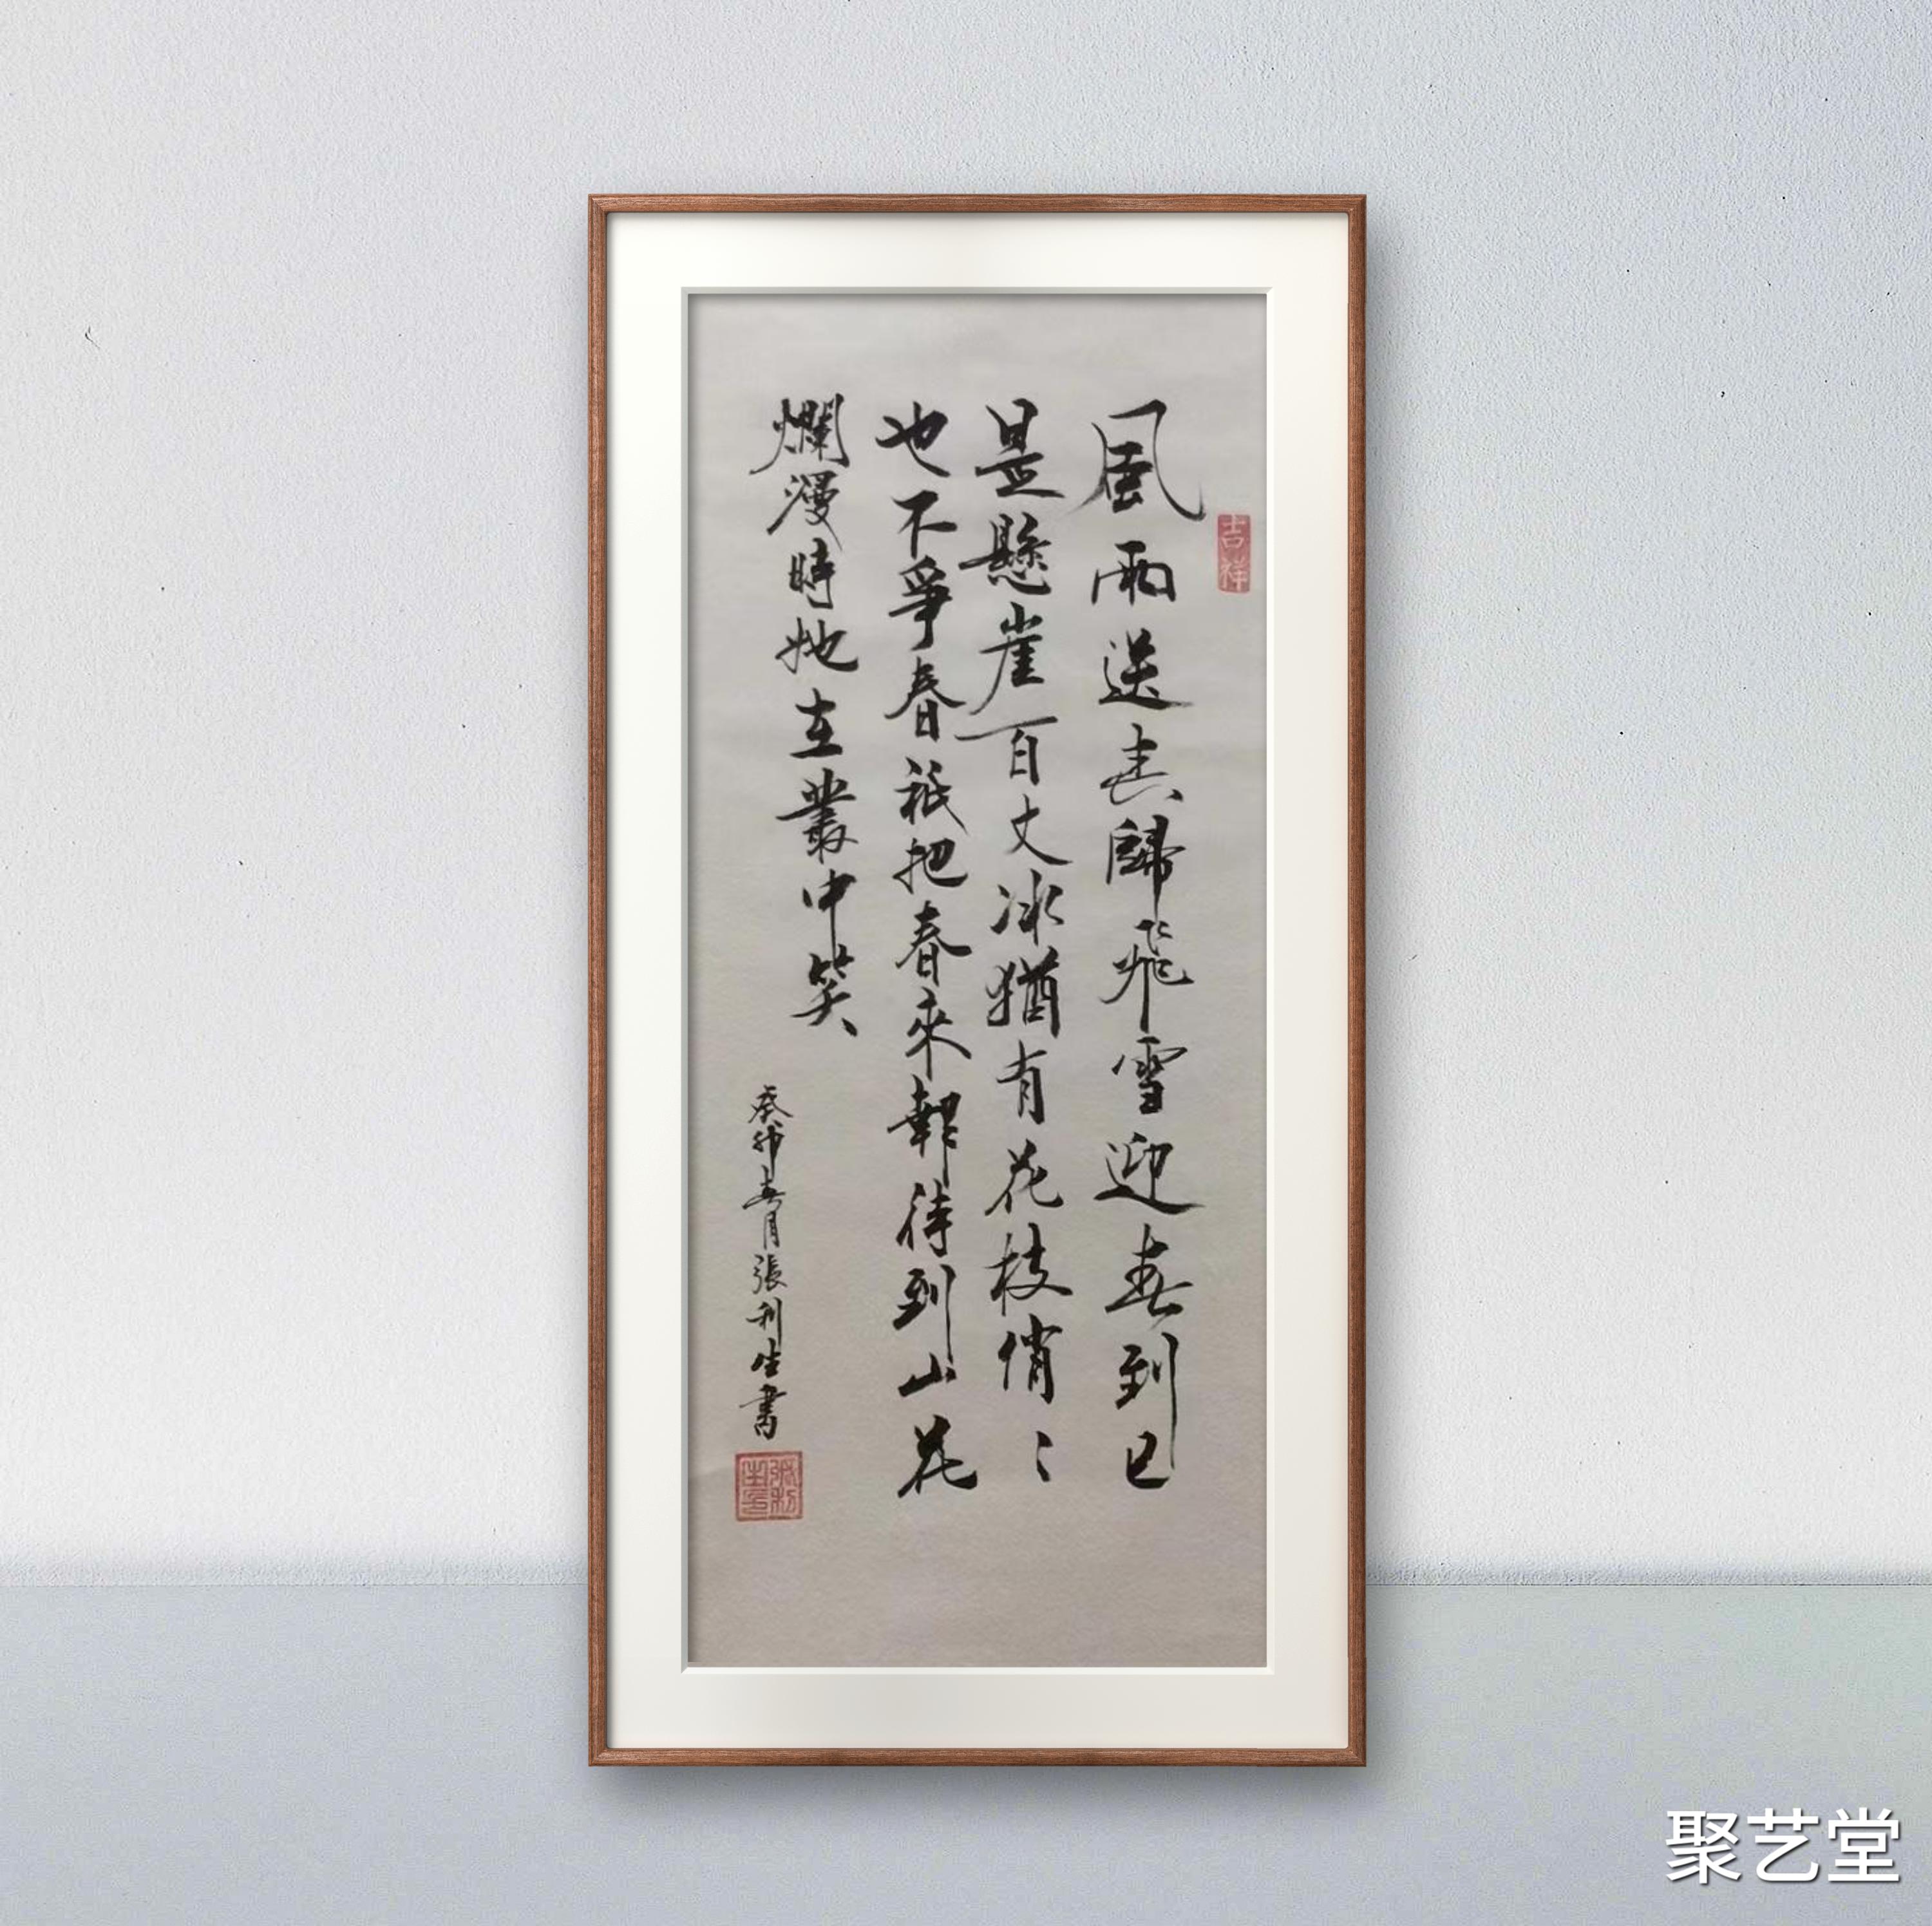 風雨送春歸飛雪迎春到已
是懸崖百丈冰猶有花枝俏〻
也不爭春祇把春來報待到山花
爛漫時她在叢中笑
癸卯春月張利生書
吉祥
張利生印
聚艺堂